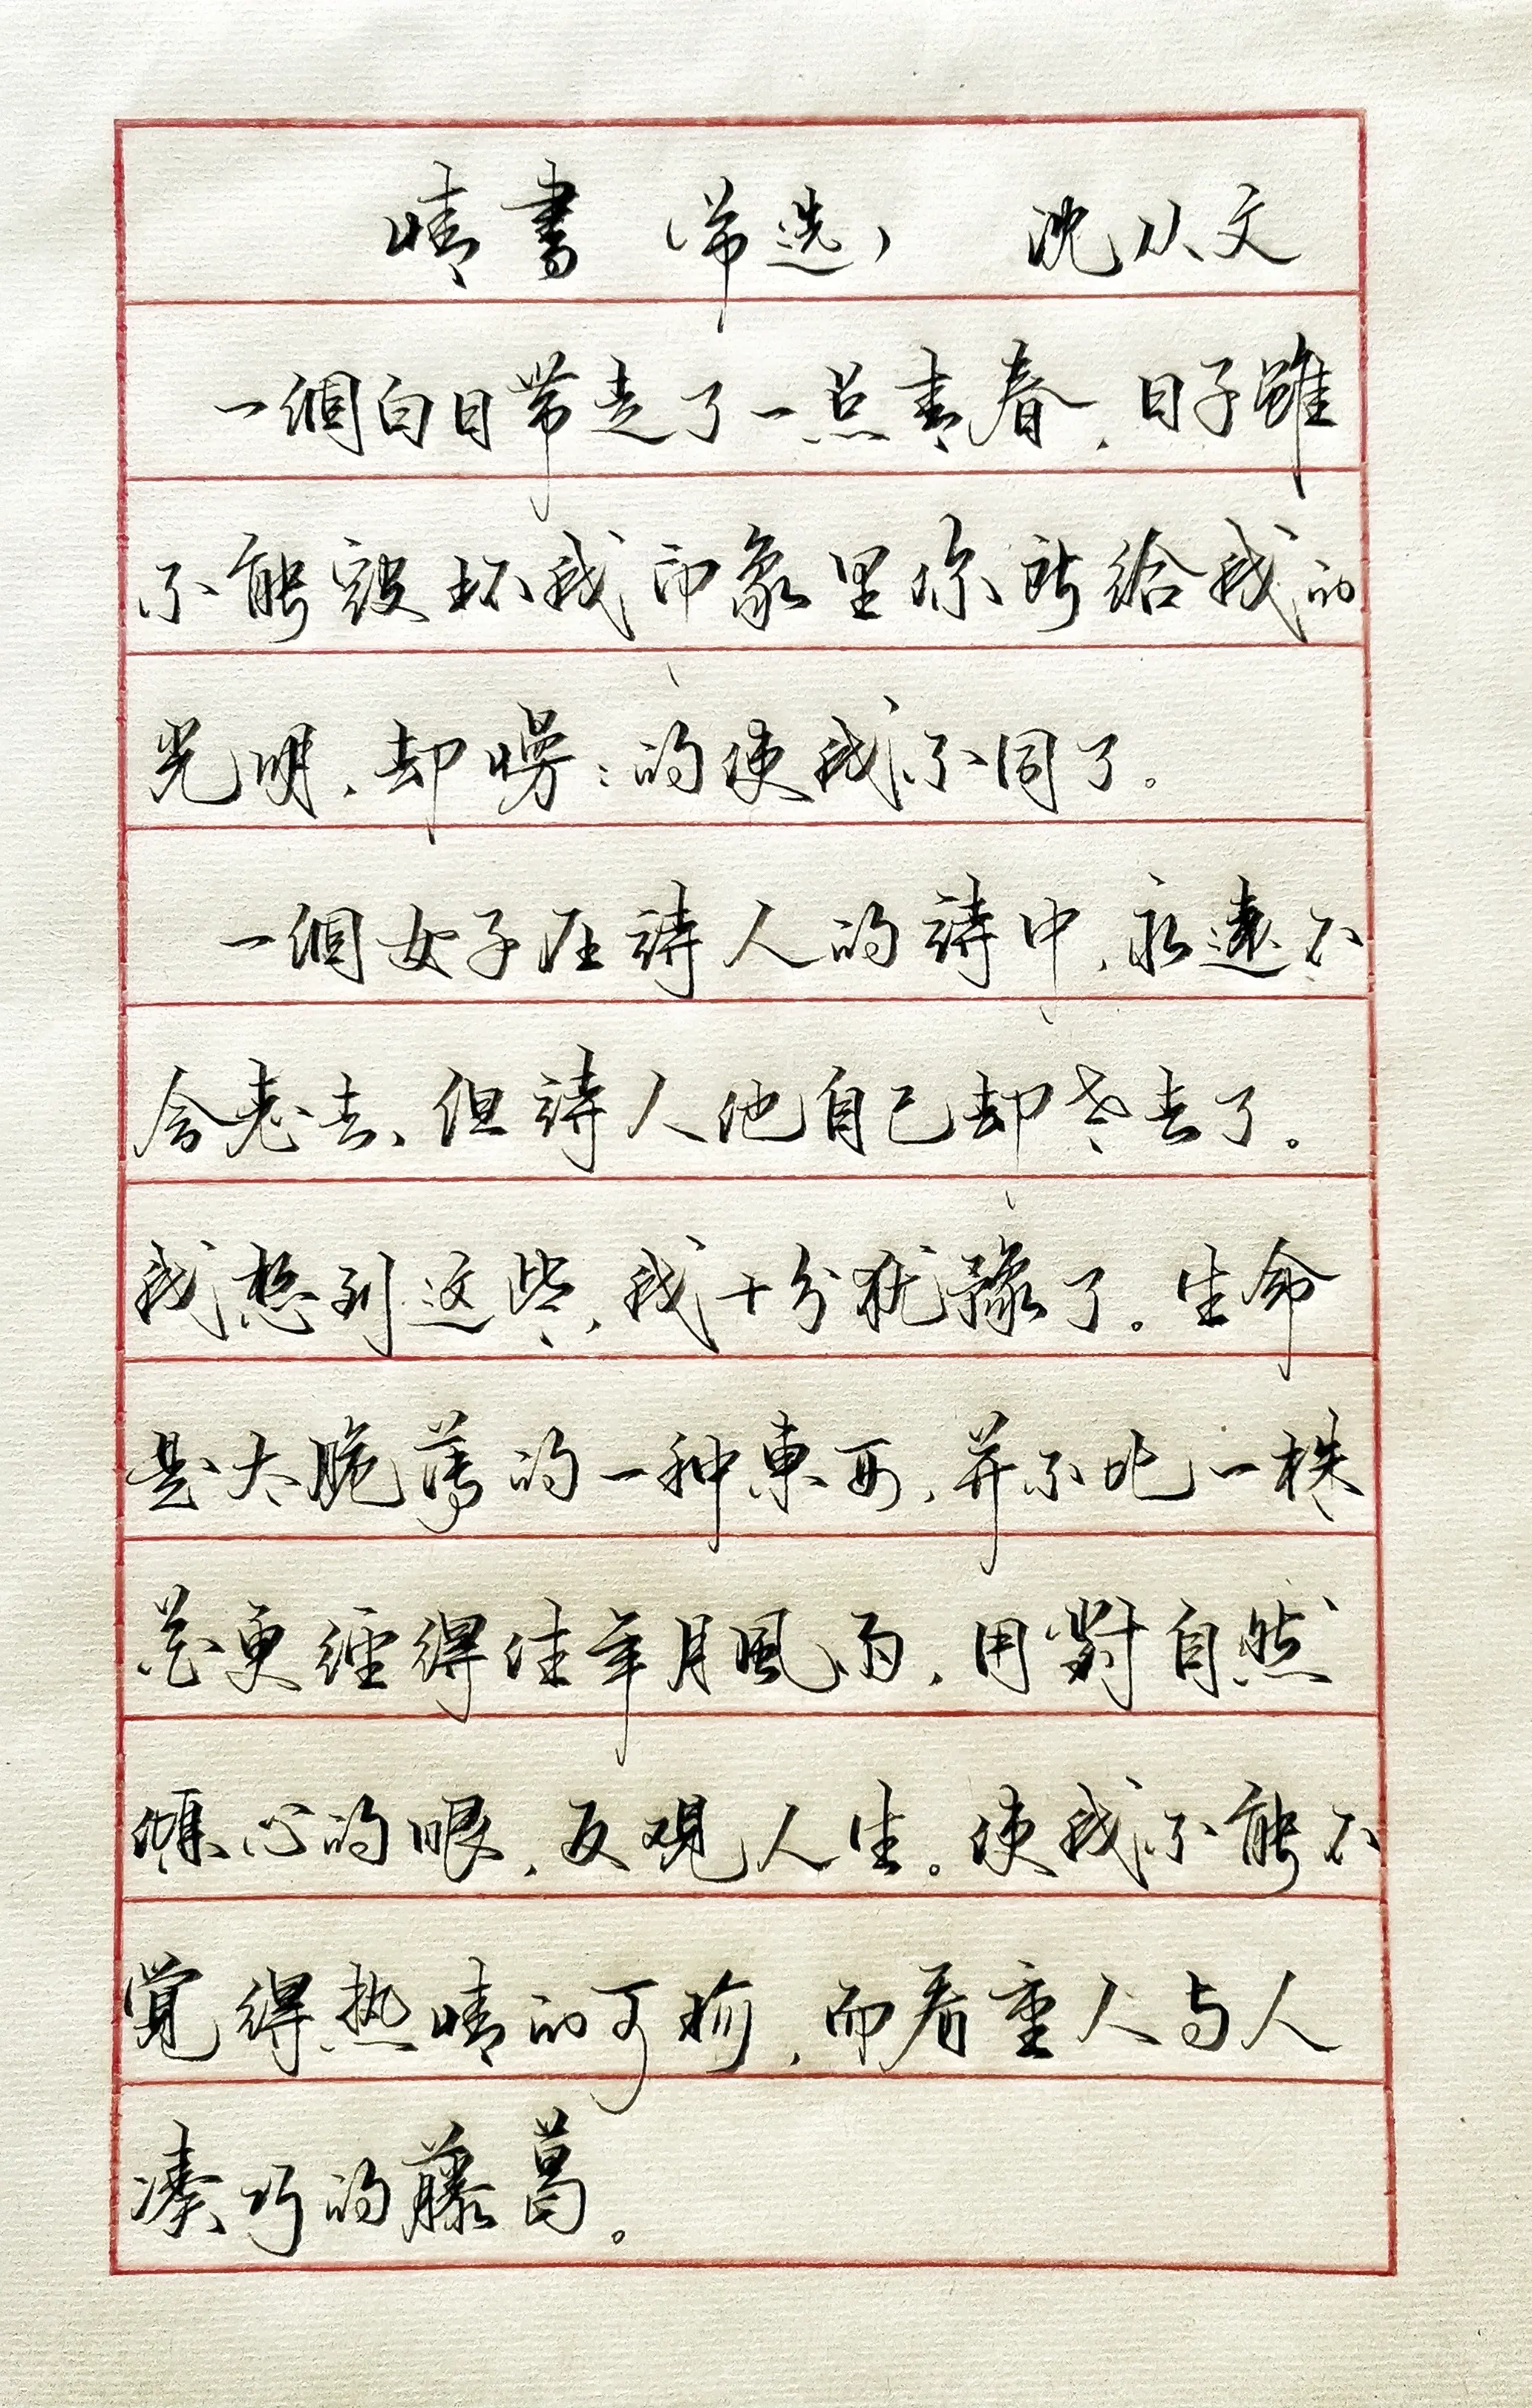 情書（節选） 沈从文
一個白日带走了一点青春，日子雖
不能毀坏我印象里你所给我的
光明，却慢慢的使我不同了。
一個女子在詩人的詩中，永遠不
会老去，但詩人他自己却老去了。
我想到这些，我十分犹豫了。生命
是太脆薄的一种東西，并不比一株
花更經得住年月風雨，用對自然
傾心的眼，反观人生。使我不能不
覺得热情的可珍，而看重人与人
凑巧的藤葛。